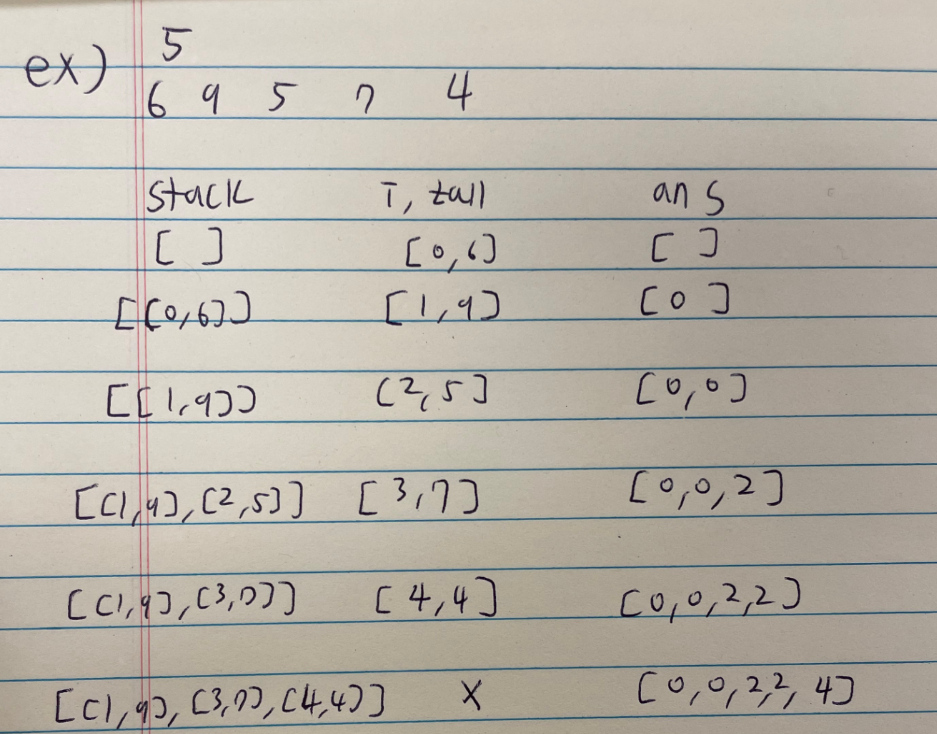 ex) 5
6 9 5 7 4
stack i, tall ans
[ ] [0,6] [ ]
[[0,6]] [1,9] [0]
[[1,9]] [2,5] [0,0]
[[1,9],[2,5]] [3,7] [0,0,2]
[[1,9],[3,7]] [4,4] [0,0,2,2]
[[1,9],[3,7],[4,4]] X [0,0,2,2,4]